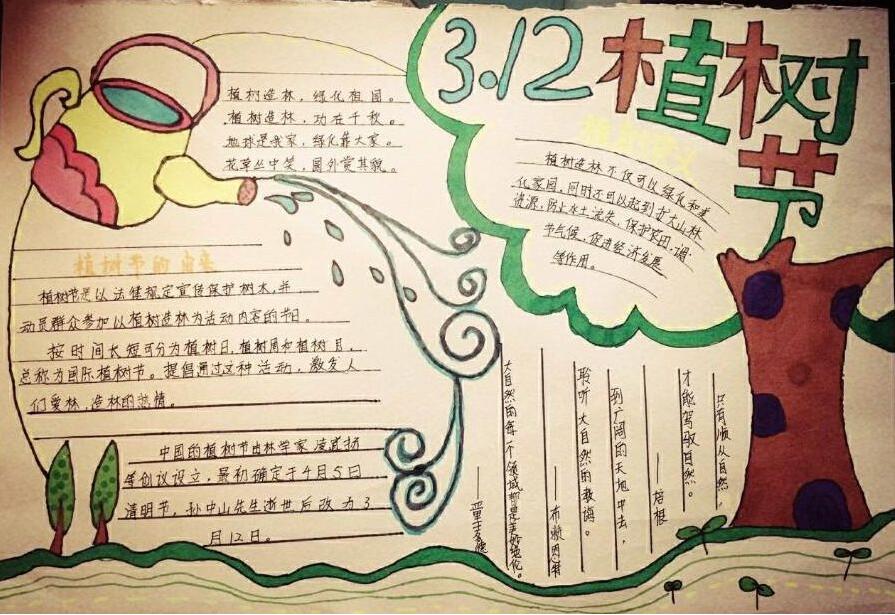 3.12 植树
节
植树造林，绿化祖国。
植树造林，功在千秋。
地球是我家，绿化靠大家。
花草丛中笑，园外赏其貌。
植树造林不仅可以绿化和美
化家园，同时还可以起到扩大山林
资源、防止水土流失、保护农田、调
节气候、促进经济发展
等作用。
植树节的由来
植树节是以法律规定宣传保护树木，并
动员群众参加以植树造林为活动内容的节日。
按时间长短可分为植树日、植树周和植树月，
总称为国际植树节。提倡通过这种活动，激发人
们爱林、造林的热情。
中国的植树节由林学家凌道扬
等创议设立，最初确定于4月5日
清明节，孙中山先生逝世后改为3
月12日。
只有顺从自然，
才能驾驭自然。
——培根
到广阔的天地中去，
聆听大自然的教诲。
——布赖恩特
大自然的每一个领域都是美妙绝伦。
——亚里士多德